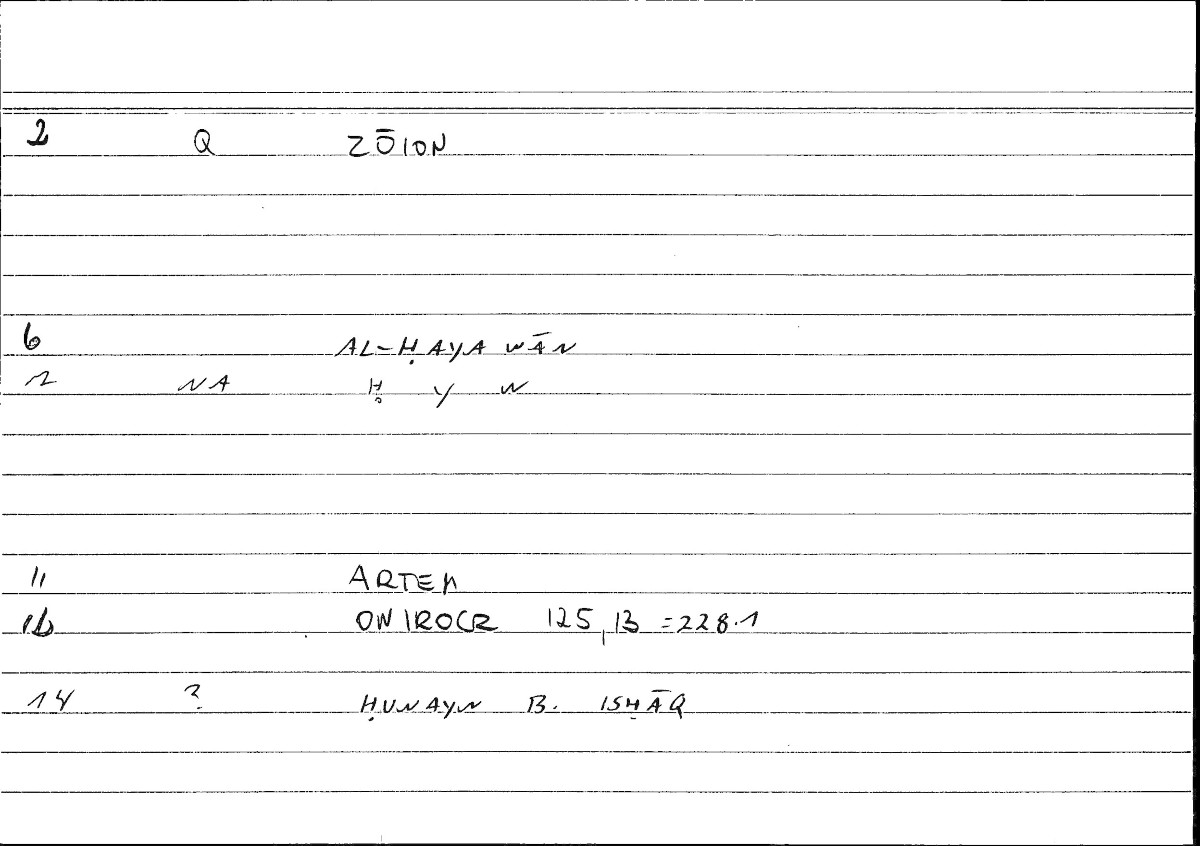 2 Q ZŌION
6 AL-ḤAYAWĀN
7 NA Ḥ Y W
11 ARTEM
12 ONIROCR 125,13 =228.1
14 ? ḤUNAYN B. ISḤĀQ